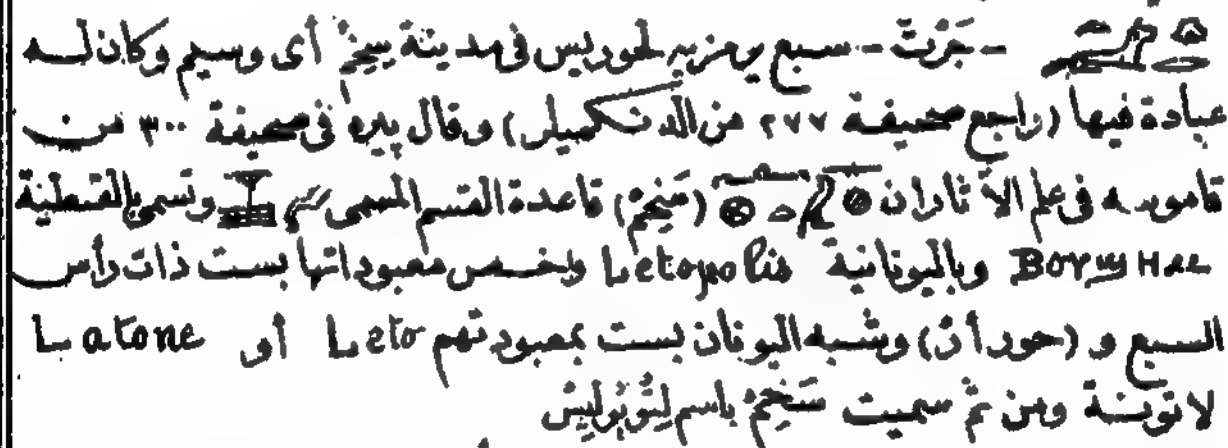 - جَرْتْ - سبع يرمز به لحوريس فى مدينة سِخِمْ أى وسيم وكان له
عبادة فيها (راجع صحيفة ٢٧٧ من التكميلى) وقال پيره فى صحيفة ٣٠٠ من
قاموسه فى علم الآثار ان (سَخِمْ) قاعدة القسم المسمى وتسمى بالقبطية
وباليونانية Letopolis واخص معبوداتها بست ذات رأس
السبع و (حور أن) وشبه اليونان بست بمعبودتهم Leto أو Latone
لاتونة ومن ثم سميت سَخِمْ باسم لِتُوپُولِيسْ